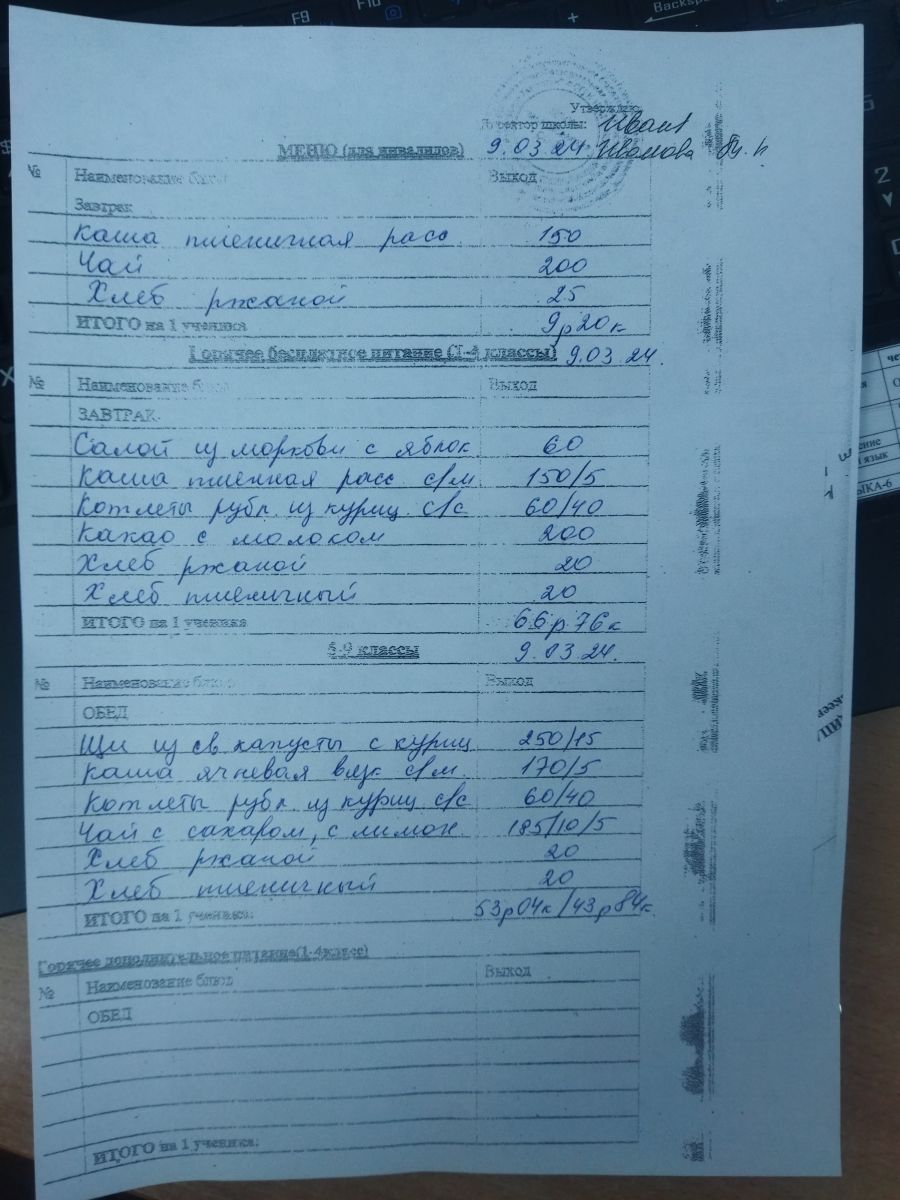 F9
F10
Backsp
Утверждаю
Директор школы:
МЕНЮ (для инвалидов) 9.03.24
№ Наименование блюд Выход
Завтрак
Каша пшеничная расс 150
Чай 200
Хлеб ржаной 25
ИТОГО на 1 ученика 9р20к
Горячее бесплатное питание (1-4 классы) 9.03.24.
№ Наименование блюд Выход
ЗАВТРАК
Салат из моркови с яблок 60
Каша пшенная расс с/м 150/5
Котлеты рубл из куриц с/с 60/40
Какао с молоком 200
Хлеб ржаной 20
Хлеб пшеничный 20
ИТОГО на 1 ученика 66р76к
5-9 классы 9.03.24.
№ Наименование блюд Выход
ОБЕД
Щи из св капусты с куриц 250/15
Каша ячневая вязк с/м 170/5
Котлеты рубл из куриц с/с 60/40
Чай с сахаром, с лимон. 185/10/5
Хлеб ржаной 20
Хлеб пшеничный 20
ИТОГО на 1 ученика: 53р04к/43р84к.
Горячее дополнительное питание(1-4класс)
№ Наименование блюд Выход
ОБЕД
ИТОГО на 1 ученика: